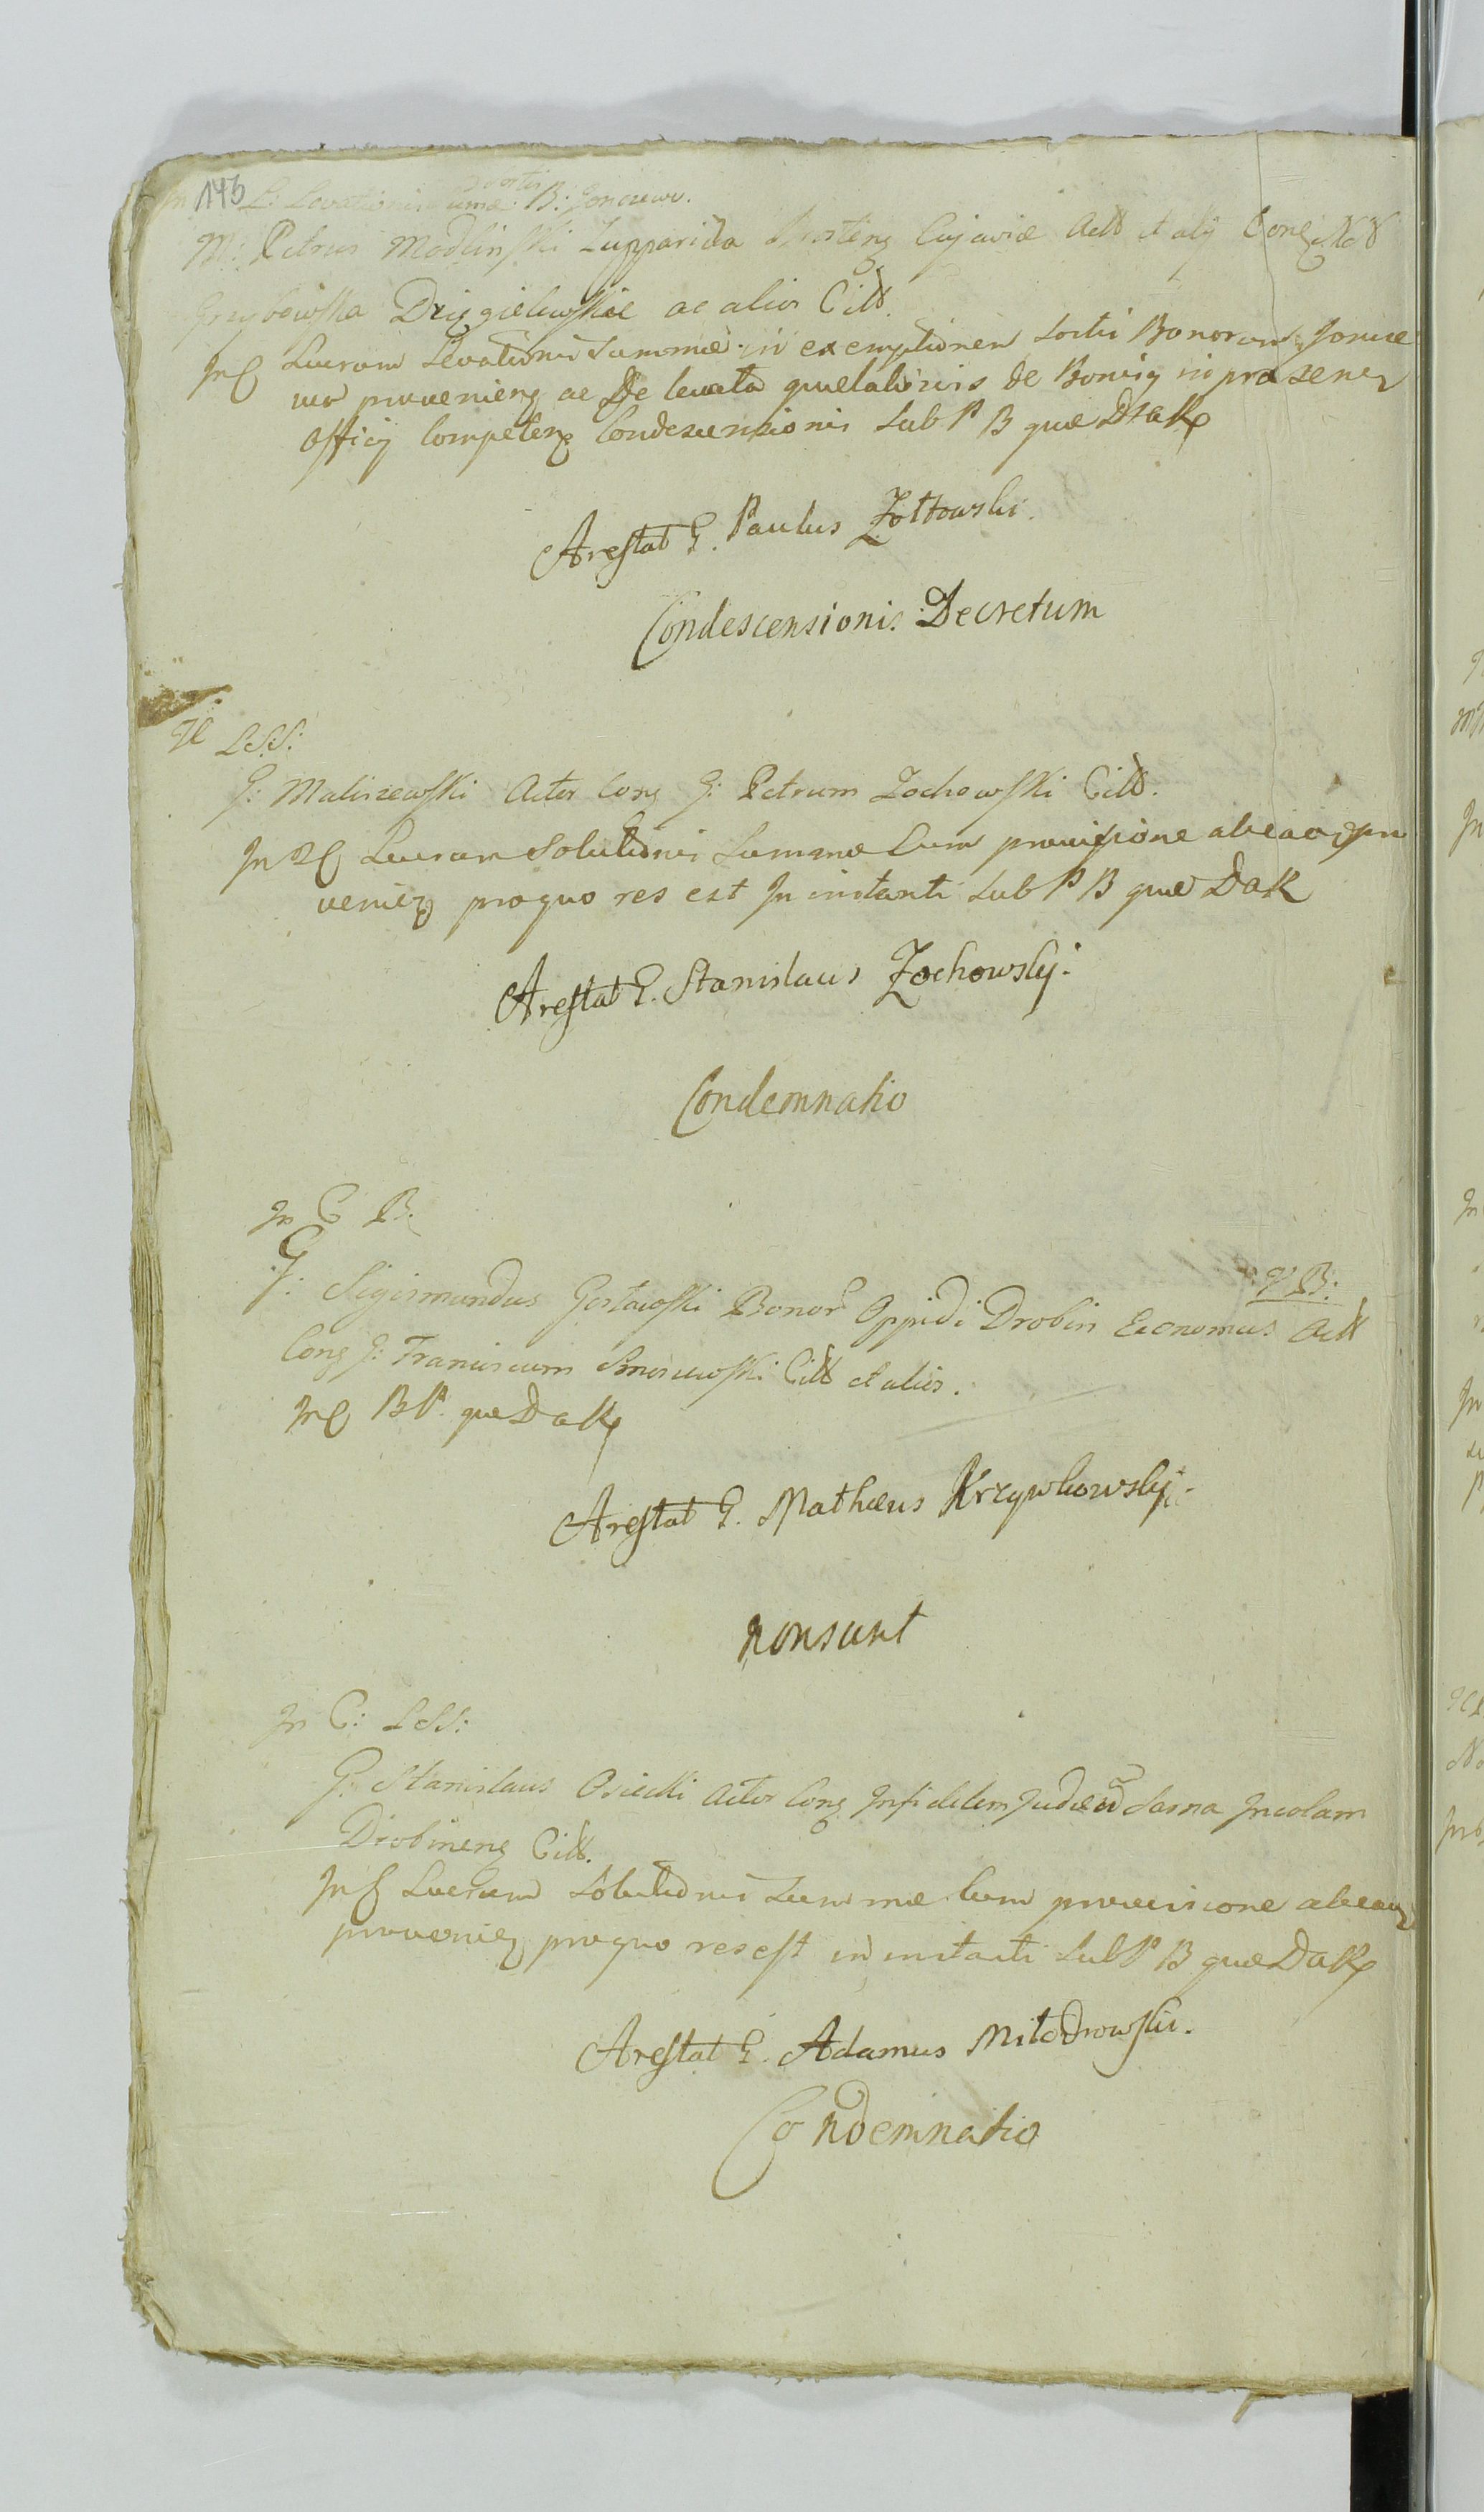 146
In L: Levationis Sumæ Sortis B: Joncewo.
M: Petrus Modlinski Zupparida Bresteng Cujaviæ Actt et alij Cong
Drięgielewskie ac alios Citt.
Luerum Levationis Summæ in exemptionem Sortis Bonorum Jonce
wo proveniens ac De levata quietationis de Bonis in præsen
Officij Competens Condescensionis Sub P B quæ D
Arestat G. Paulus Żołtowski.
Condescensionis Decretum
LSS:
G: Maliszewski Actor Cong G: Petrum Żochowski Citt.
Solutionis Summæ Cum provisione ab ea pro
venien pro quo res est In instanti Sub P B quæ DaK
Arestat G. Stanislaus Zochowsky.
Condemnatio
In C B.
V B:
G: Sigismundus Gostowski Bonor Oppidi Drobin Economus Actt
Cong G: Franciscum Smoszewski Citt et alios.
B P. quæ DaK
Arestat G. Mathæus Krzywkowsky.
non sunt
In C: LSS:
G: Stanislaus Osiecki Actor Cong Infidelem Judæu Sarna Incolam
Drobineng Citt.
Solutionis Summæ Cum provisione ab ea
provenien pro quo res est in instanti Sub P B quæ DaK
Arestat G. Adamus Miłodrowski.
Condemnatio